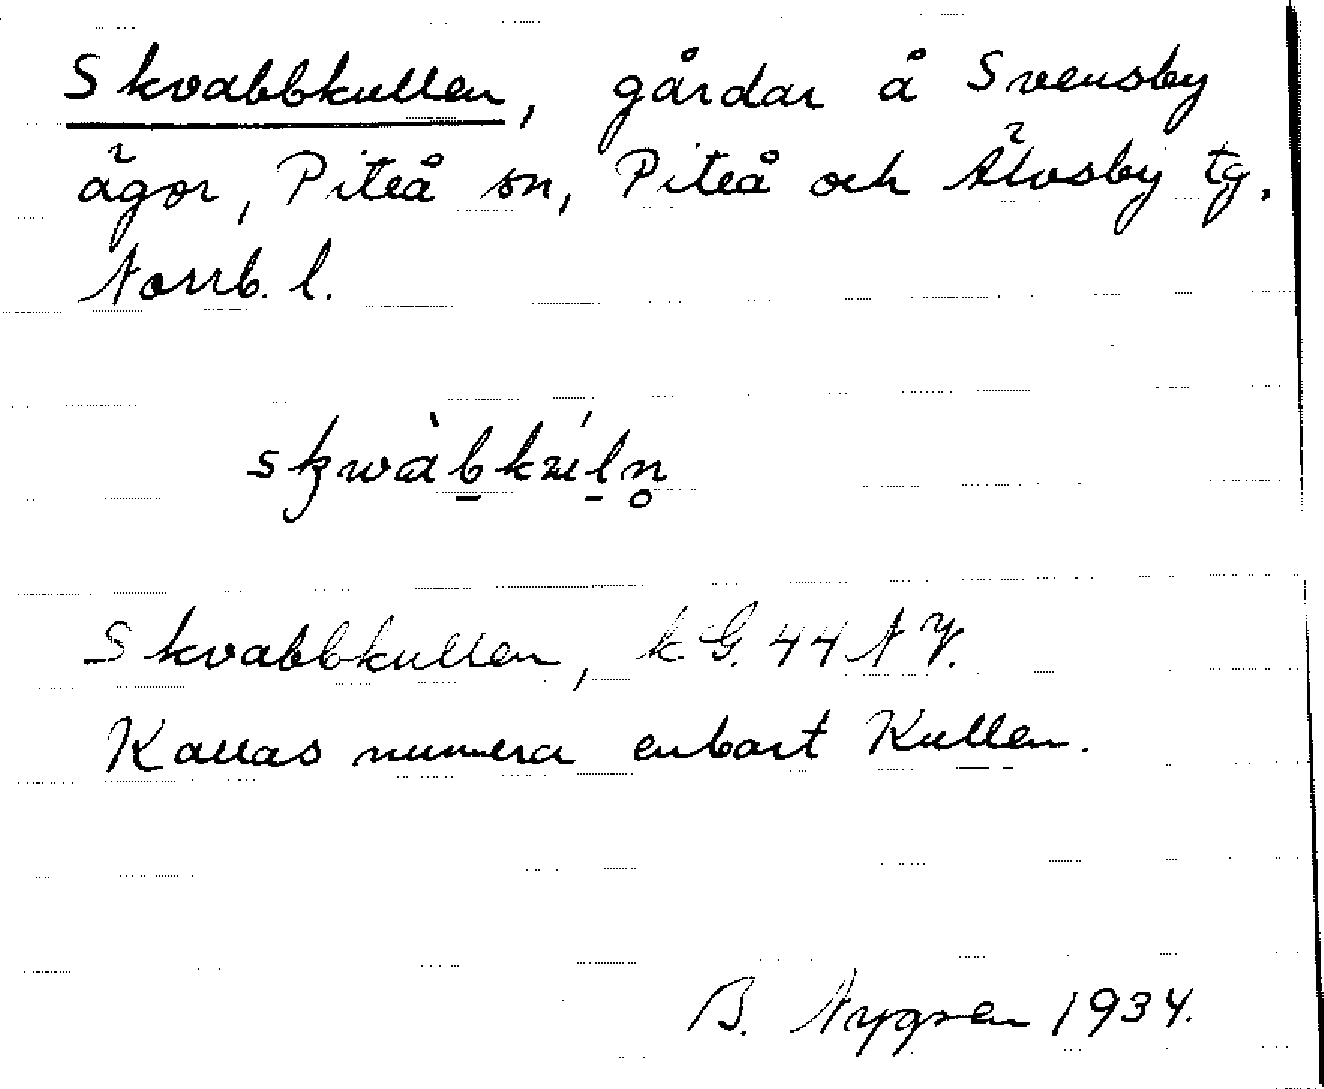 Skvabbkullen, gårdar å Svensby
ägor, Piteå sn, Piteå och Älvsby tg.
Norrb. l.
skwàbkúln̥
Skvabbkullen, k. G. 44 N V.
Kallas numera enbart Kullen.
B. Nygren 1934.